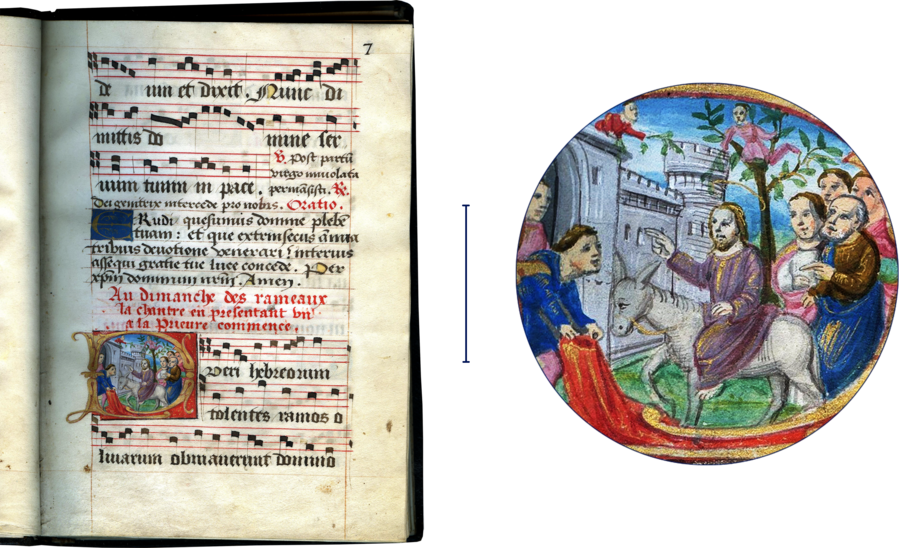 7
de um et dixit. Nunc di
mittis do mine ser
℣. Post partū
virgo inuiolata
uum tuum in pace. permāsisti. ℟.
Dei genitrix intercede pro nobis. Oratio.
ERudi quesumus domine plebē
tuam : et que extrinsecus ānua
tribuis deuotione venerari ! interius
assequi gratie tue luce concede. Per
xp̄m dominum nr̄m. Amen.
Au dimanche des rameaux
la chantre en presentant vn
a la Prieure commence.
Pueri hebreorum
tolentes ramos o
liuarum obuiauerunt domino